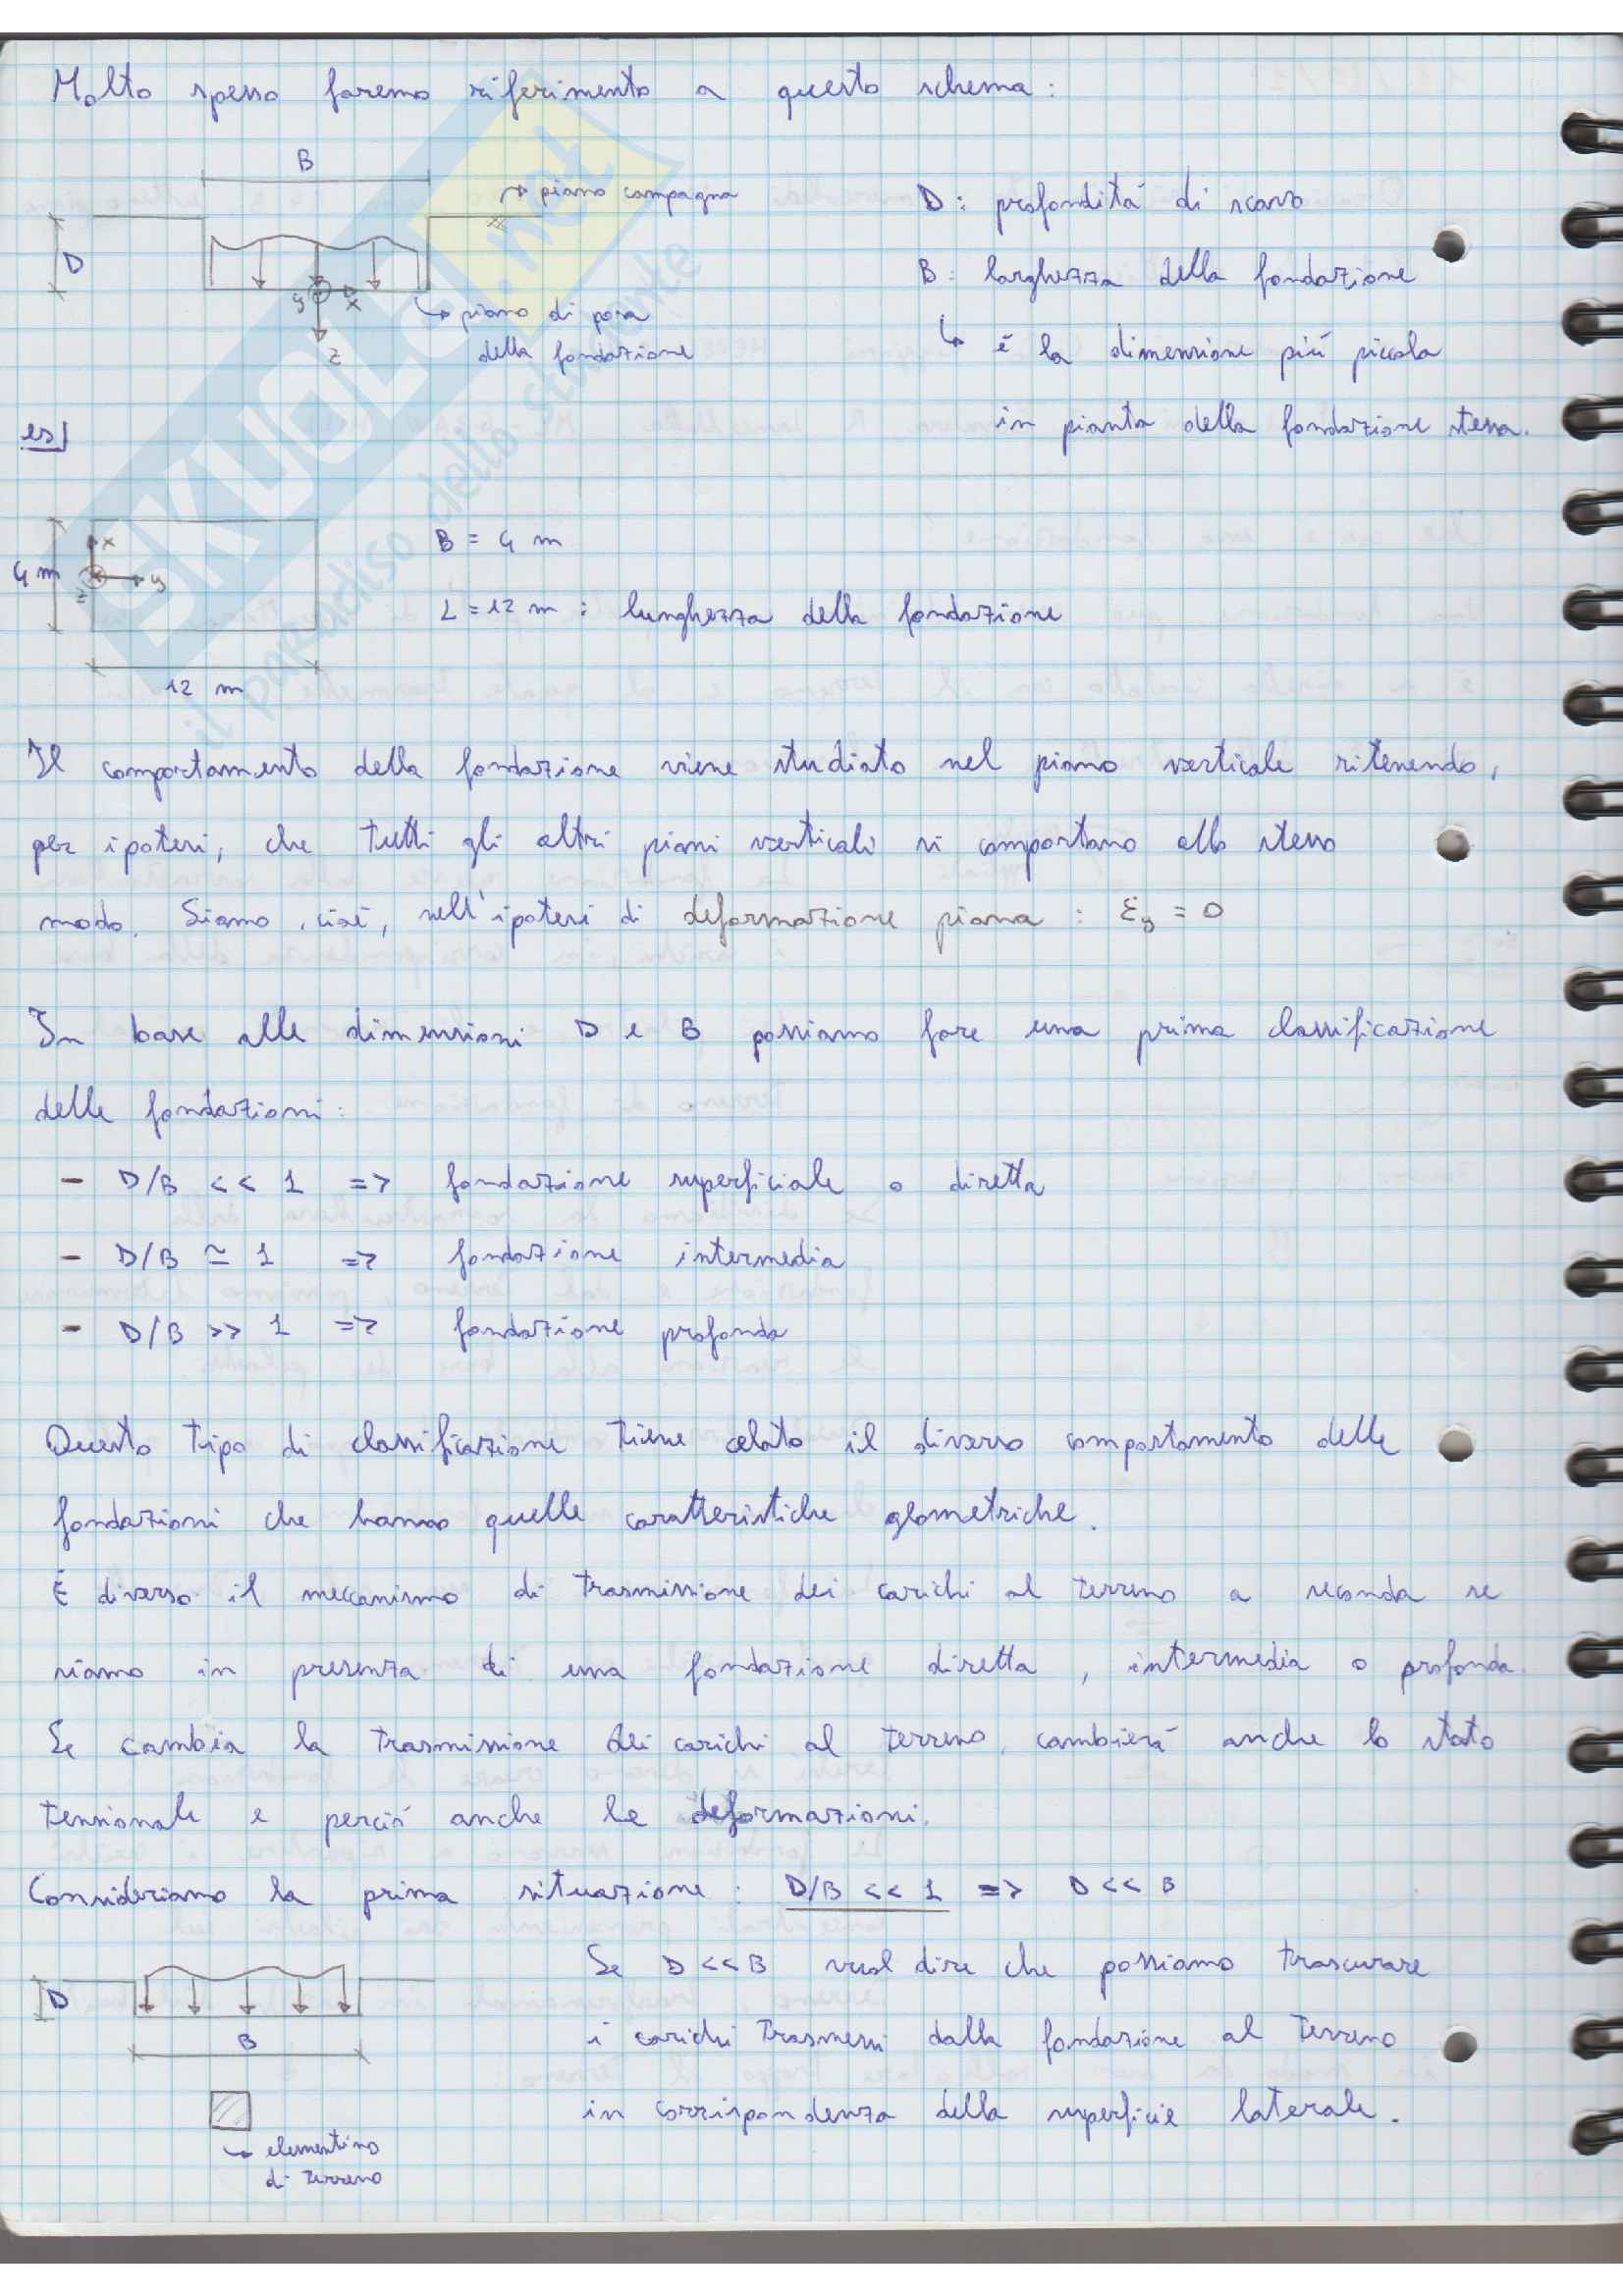 Molto spesso faremo riferimento a questo schema:
B
piano campagna
D
y
x
z
piano di posa
della fondazione
D: profonditá di scavo
B: larghezza della fondazione
é la dimensione piú piccola
in pianta della fondazione stessa.
es]
4 m
x
y
z
12 m
B = 4 m
L = 12 m : lunghezza della fondazione
Il comportamento della fondazione viene studiato nel piano verticale ritenendo,
per ipotesi, che tutti gli altri piani verticali si comportano allo stesso
modo. Siamo, cioé, nell'ipotesi di deformazione piana : εy = 0
In base alle dimensioni D e B possiamo fare una prima classificazione
delle fondazioni:
- D/B << 1 => fondazione superficiale o diretta
- D/B ≃ 1 => fondazione intermedia
- D/B >> 1 => fondazione profonda
Questo tipo di classificazione tiene celato il diverso comportamento delle
fondazioni che hanno quelle caratteristiche geometriche.
É diverso il meccanismo di trasmissione dei carichi al terreno a seconda se
siamo in presenza di una fondazione diretta, intermedia o profonda.
Se cambia la trasmissione dei carichi al terreno, cambierá anche lo stato
tensionale e perció anche le deformazioni.
Consideriamo la prima situazione : D/B << 1 => D << B
D
B
elementino
di terreno
Se D << B vuol dire che possiamo trascurare
i carichi trasmessi dalla fondazione al terreno
in corrispondenza della superficie laterale.
SKUOLA.net
il paradiso dello studente